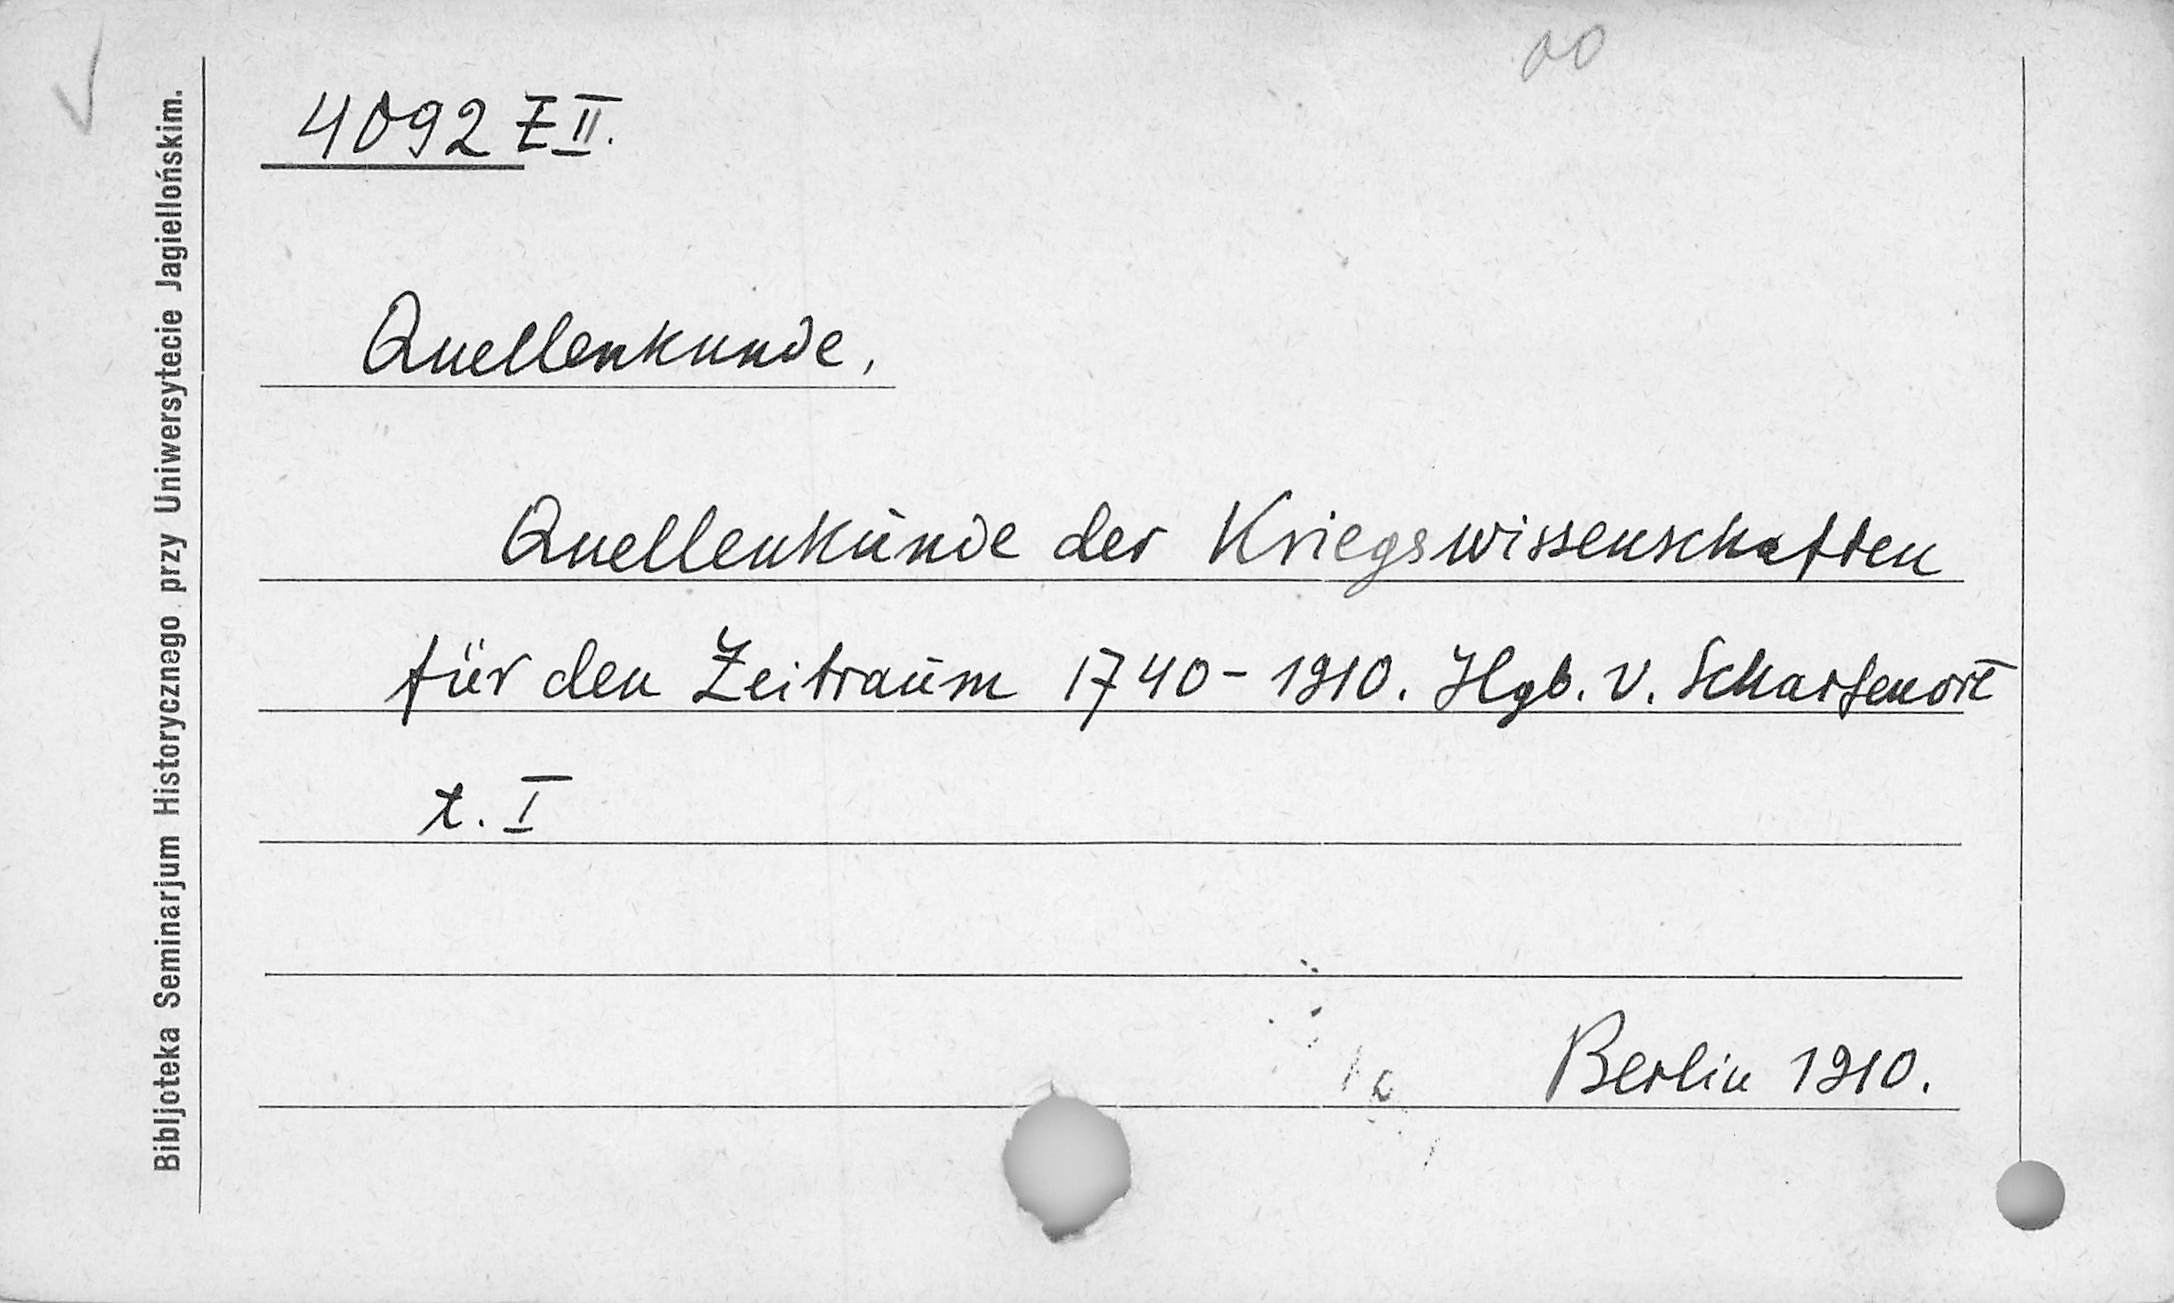 4092 Z II.
Quellenkunde.
Quellenkunde der Kriegswissenschaften
für den Zeitraum 1740-1910. Hgb. v. Scharfenort
t. I
Berlin 1910.
Bibljoteka Seminarjum Historycznego przy Uniwersytecie Jagiellońskim.